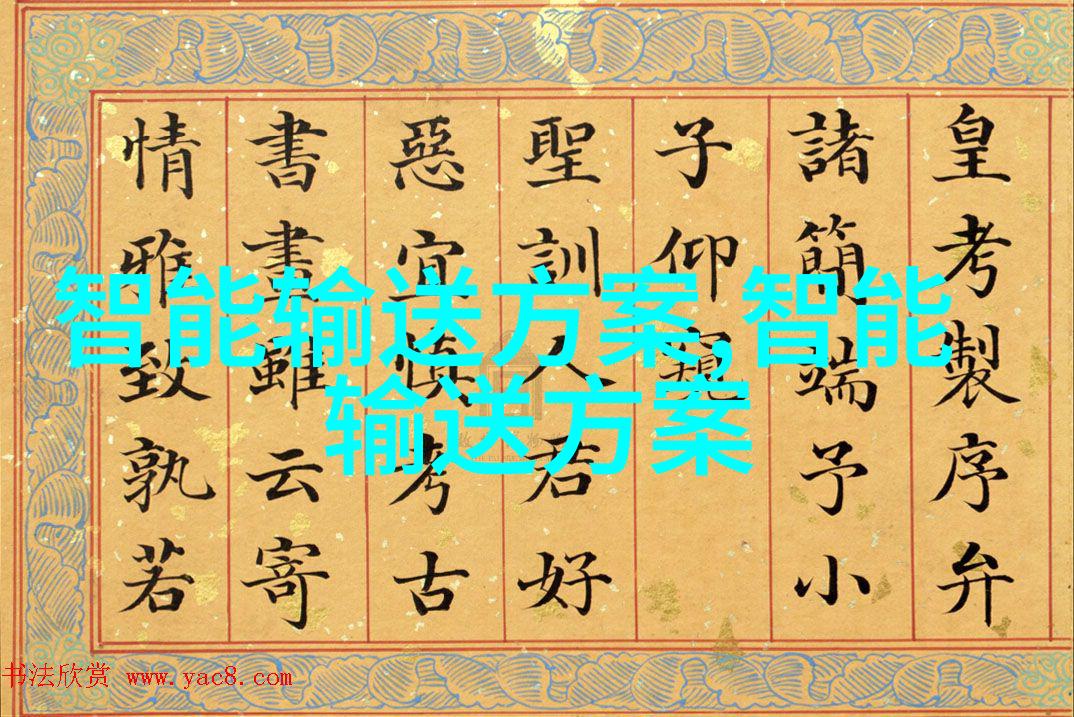 皇考製序弁
諸簡端予小
子仰窺
聖訓人君好
惡宜慎考古
書畫雖云寄
情雅致孰若
智能输送方案,智能
输送方案
书法欣赏 www.yac8.com